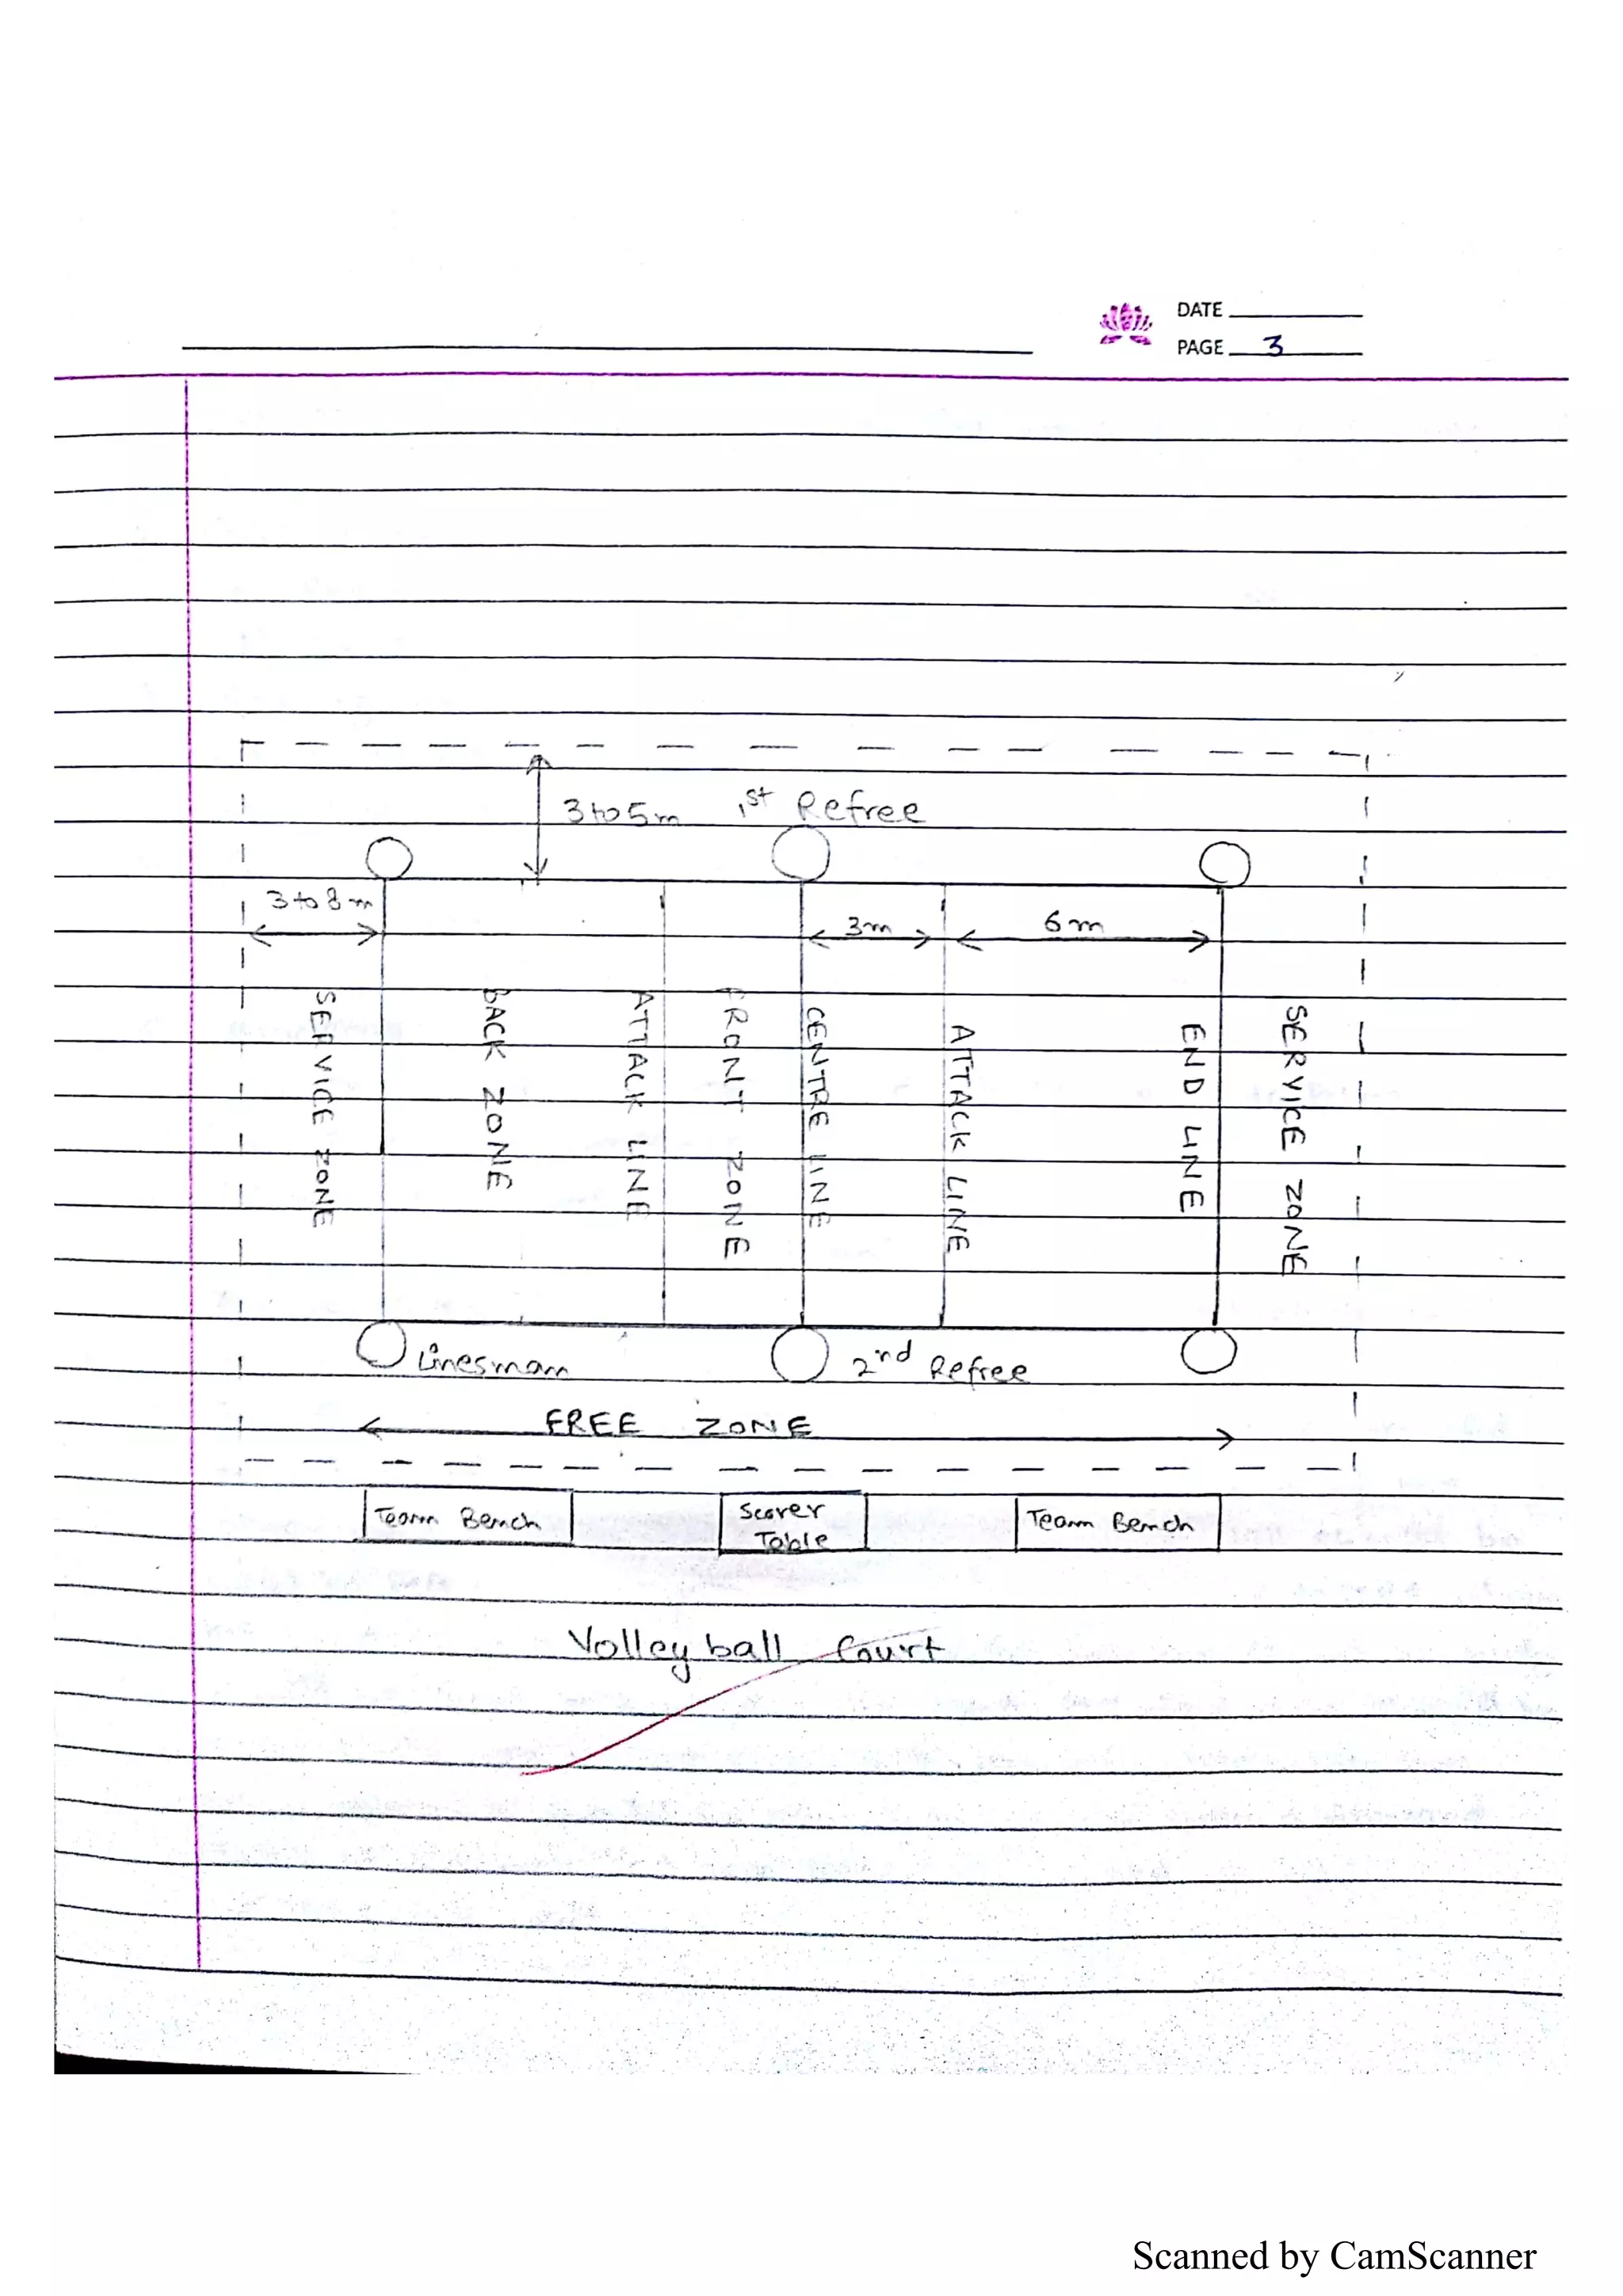 DATE
PAGE 3
3 to 5 m 1st Refree
3 to 8 m
3m
6 m
SERVICE ZONE
BACK ZONE
ATTACK LINE
FRONT ZONE
CENTRE LINE
ATTACK LINE
END LINE
SERVICE ZONE
Linesman
2nd Refree
FREE ZONE
Team Bench
Scorer
Table
Team Bench
Volley ball Court
Scanned by CamScanner